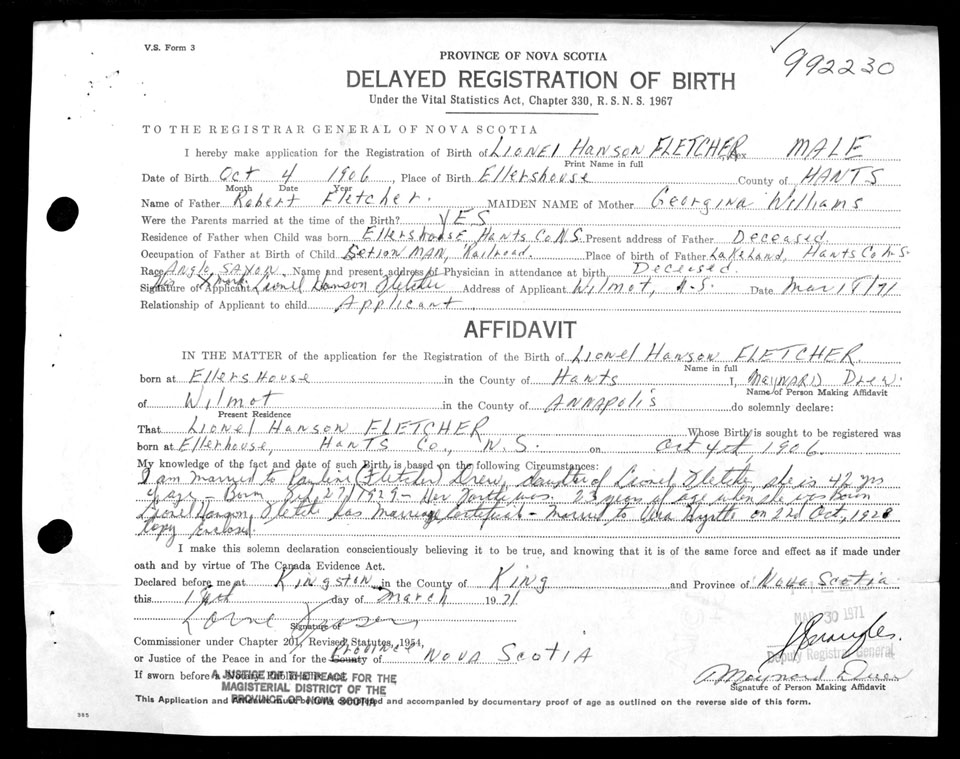 V.S. Form 3
992230
PROVINCE OF NOVA SCOTIA
DELAYED REGISTRATION OF BIRTH
Under the Vital Statistics Act, Chapter 330, R.S.N.S. 1967
TO THE REGISTRAR GENERAL OF NOVA SCOTIA
I hereby make application for the Registration of Birth of LIONEL HANSON FLETCHER Sex MALE
Print Name in full
Date of Birth Oct 4 1906, Place of Birth Ellershouse County of HANTS
Month Date Year
Name of Father Robert Fletcher. MAIDEN NAME of Mother Georgina Williams
Were the Parents married at the time of the Birth? YES
Residence of Father when Child was born Ellershouse Hants Co N.S. Present address of Father Deceased.
Occupation of Father at Birth of Child Setion MAN, Railroad. Place of birth of Father Lakeland, Hants Co N.S.
Race Anglo, SAXON. Name and present address of Physician in attendance at birth, Deceased.
Signature of Applicant Lionel Hanson Fletcher Address of Applicant Wilmot, N.S. Date Mar /71
Relationship of Applicant to child Applicant
AFFIDAVIT
IN THE MATTER of the application for the Registration of the Birth of Lionel Hanson FLETCHER
Name in full
born at Ellershouse in the County of Hants I, MAYNARD Drew.
Name of Person Making Affidavit
of Wilmot in the County of ANNAPOLIS do solemnly declare:
Present Residence
That LIONEL HANSON FLETCHER Whose Birth is sought to be registered was
born at Ellerhouse, HANTS Co., N.S. on Oct 4th, 1906
My knowledge of the fact and date of such Birth is based on the following Circumstances:
I am married to Pauline (Fletcher) Drew, daughter of Lionel Fletcher, she is 42 yrs
of age - Born 27/1929 - Her father was 23 years of age when she was born
Lionel Hanson Fletcher has Marriage Certificate - Married to Vera on 22d Oct, 1928
Copy Enclosed.
I make this solemn declaration conscientiously believing it to be true, and knowing that it is of the same force and effect as if made under
oath and by virtue of The Canada Evidence Act.
Declared before me at Kingston in the County of King and Province of Nova Scotia
this day of March 1971
MAR 30 1971
Lorne
Signature of
Commissioner under Chapter 201, Revised Statutes, 1954,
or Justice of the Peace in and for the County of Province NOVA SCOTIA
Deputy Registrar General
If sworn before a
A JUSTICE OF THE PEACE FOR THE
MAGISTERIAL DISTRICT OF THE
PROVINCE OF NOVA SCOTIA
Maynard Drew
Signature of Person Making Affidavit
This Application and Affidavit must be completed and accompanied by documentary proof of age as outlined on the reverse side of this form.